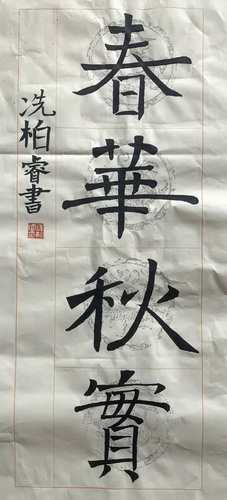 春華秋實
冼柏睿書